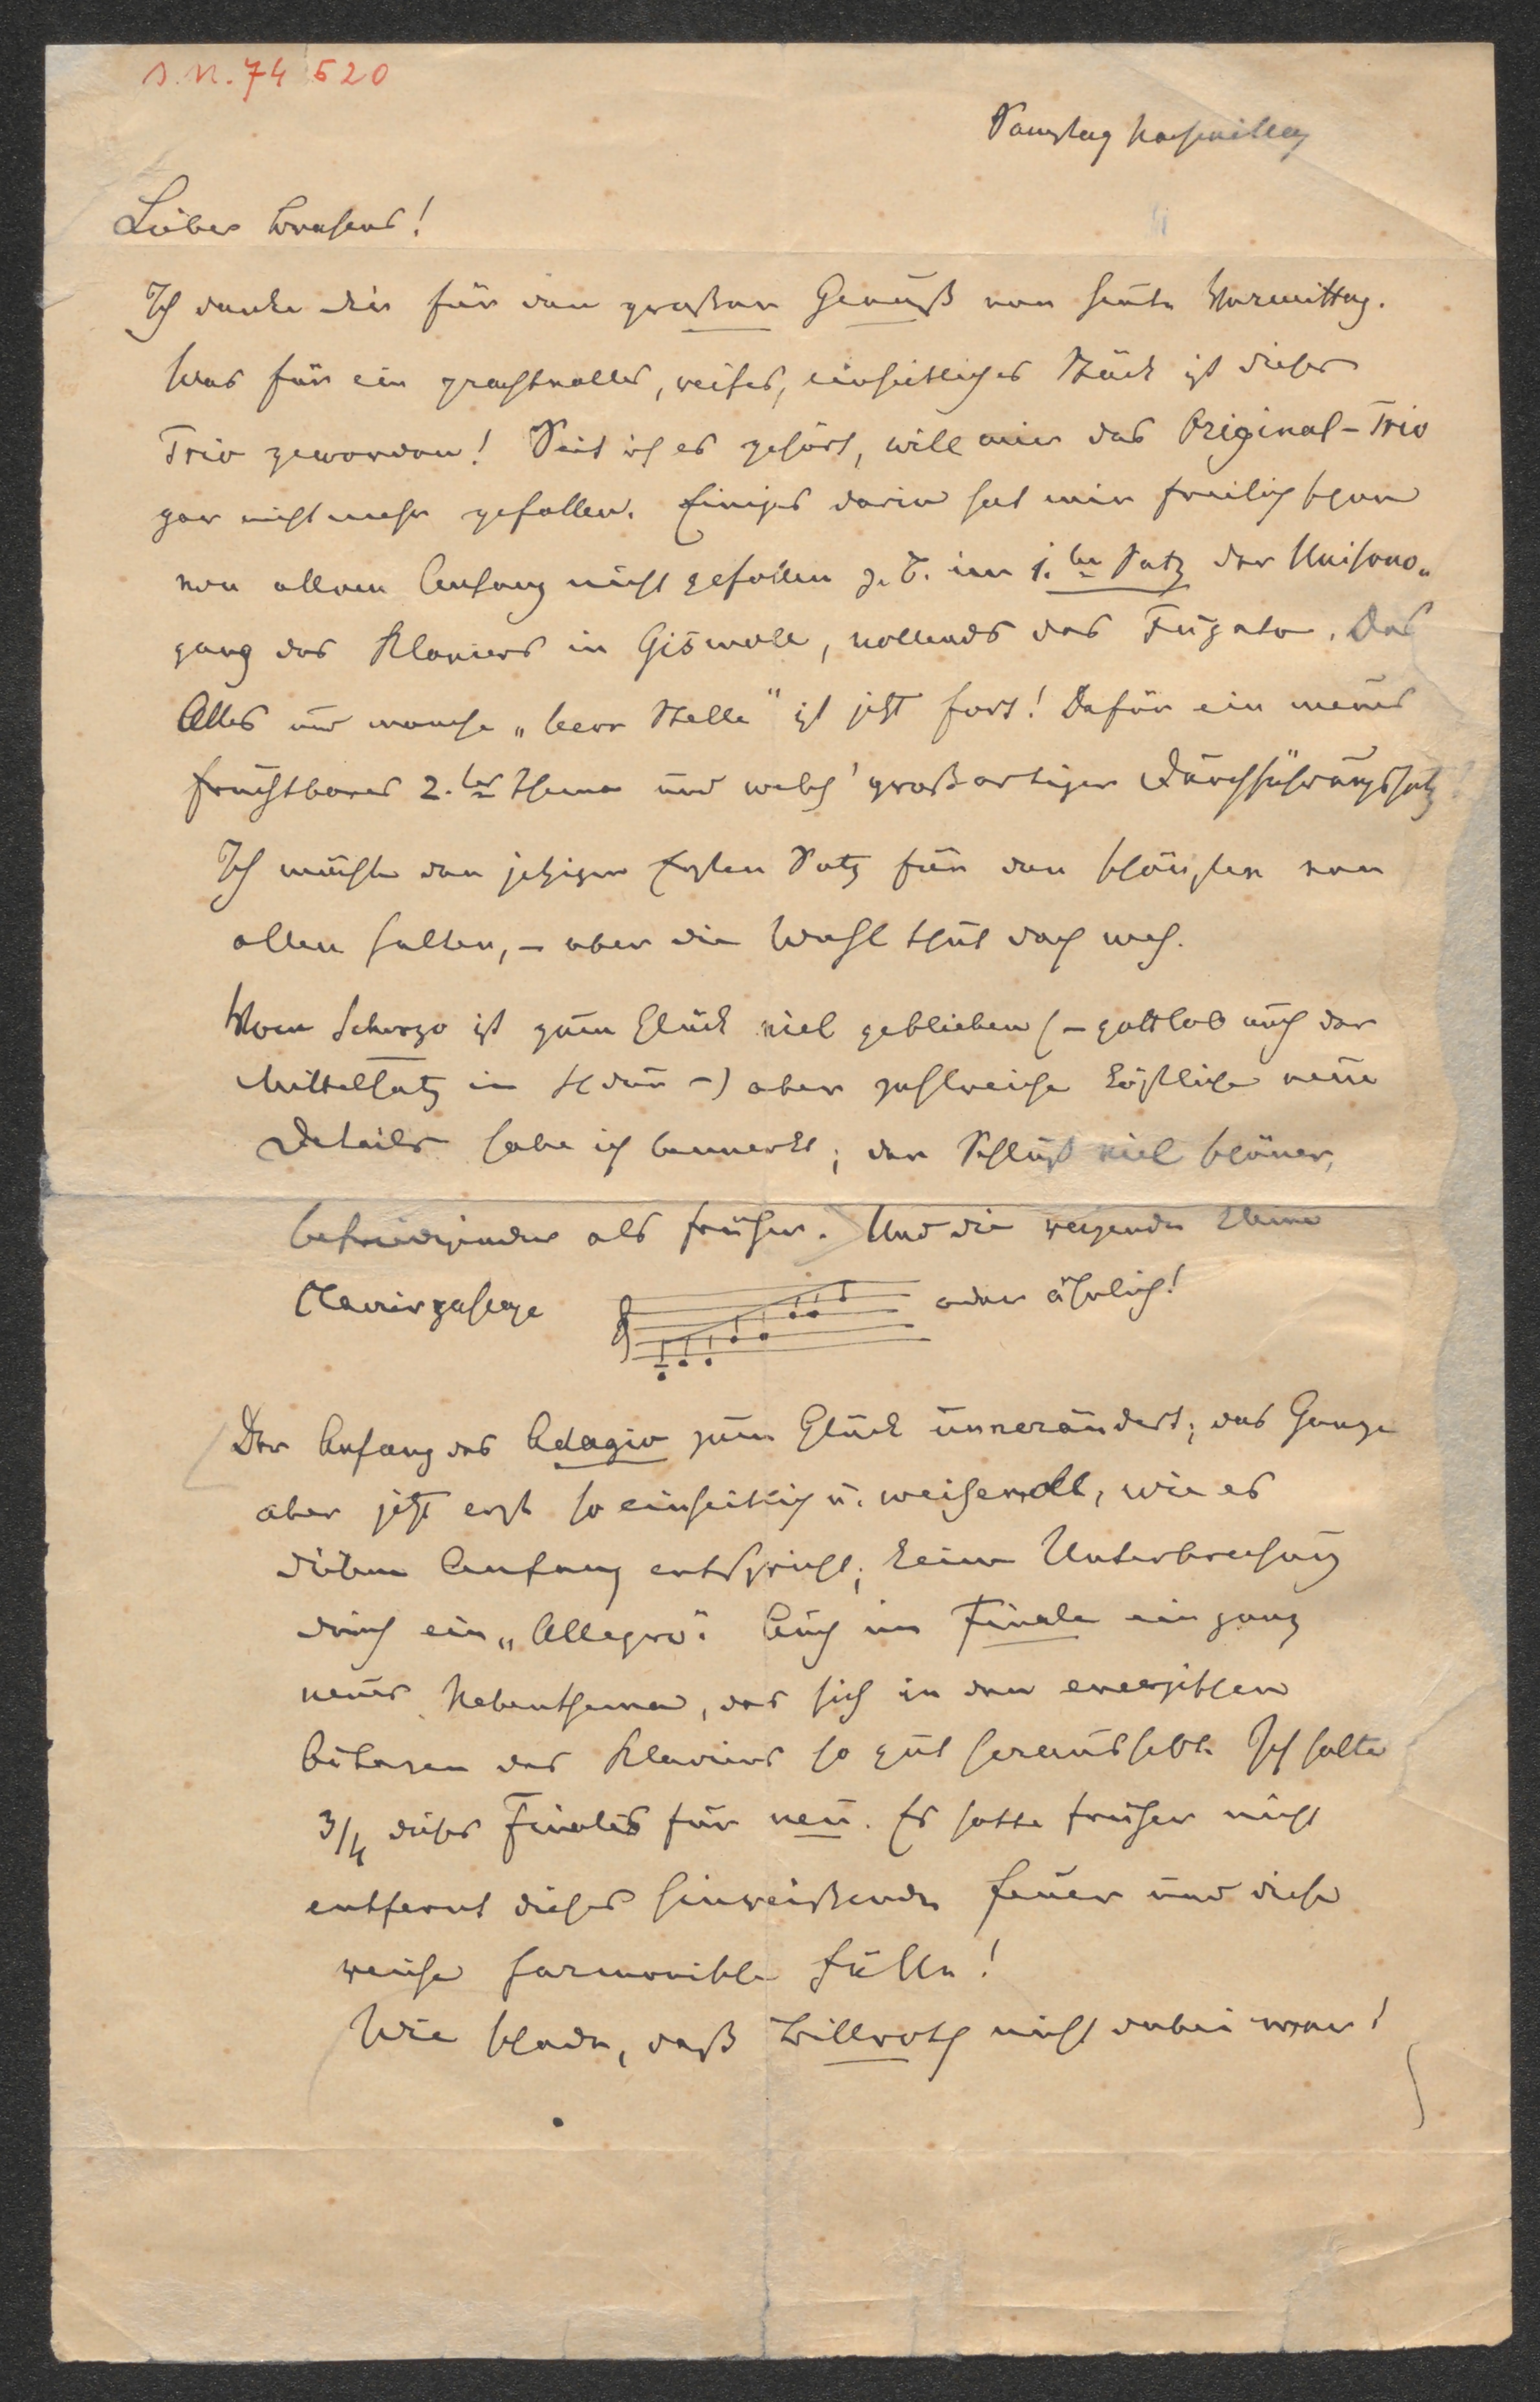 S.N. 74 520
Samstag Nachmittag
Lieber Brahms!
Ich danke dir für den großen Genuß von heute Vormittag.
Was für ein prachtvolles, reifes, einheitliches Stück ist dieses
Trio geworden! Seit ich es gehört, will mir das Original-Trio
gar nicht mehr gefallen. Einiges darin hat mir freilich schon
von allem Anfang nicht gefallen z. B. im 1.ten Satz der Unisono-
gang des Klaviers in Gismoll, vollends das Fugato. Das
Alles und manche „leere Stelle" ist jetzt fort! Dafür ein neues
fruchtbares 2.tes Thema und welch' großartiger Durchführungssatz!
Ich möchte den jetzigen Ersten Satz für den schönsten von
allen halten, – aber die Wahl thut doch weh.
Vom Scherzo ist zum Glück viel geblieben (– gottlob auch der
Mittelsatz in H dur –) aber zahlreiche köstliche neue
Details habe ich bemerkt; der Schluß viel schöner,
befriedigender als früher. Und die reizende kleine
Clavierpassage oder ähnlich!
Der Anfang des Adagio zum Glück unverändert; das Ganze
aber jetzt erst so einheitlich u. weihevoll, wie es
diesem Anfang entspricht; keine Unterbrechung
durch ein „Allegro". Auch im Finale ein ganz
neues Nebenthema, das sich in den energischen
des Klaviers so gut heraushebt. Ich halte
3/4 dieses Finales für neu. Es hatte früher nicht
entfernt dieses hinreißende Feuer und diese
reiche harmonische Fülle!
Wie schade, daß Billroth nicht dabei war!